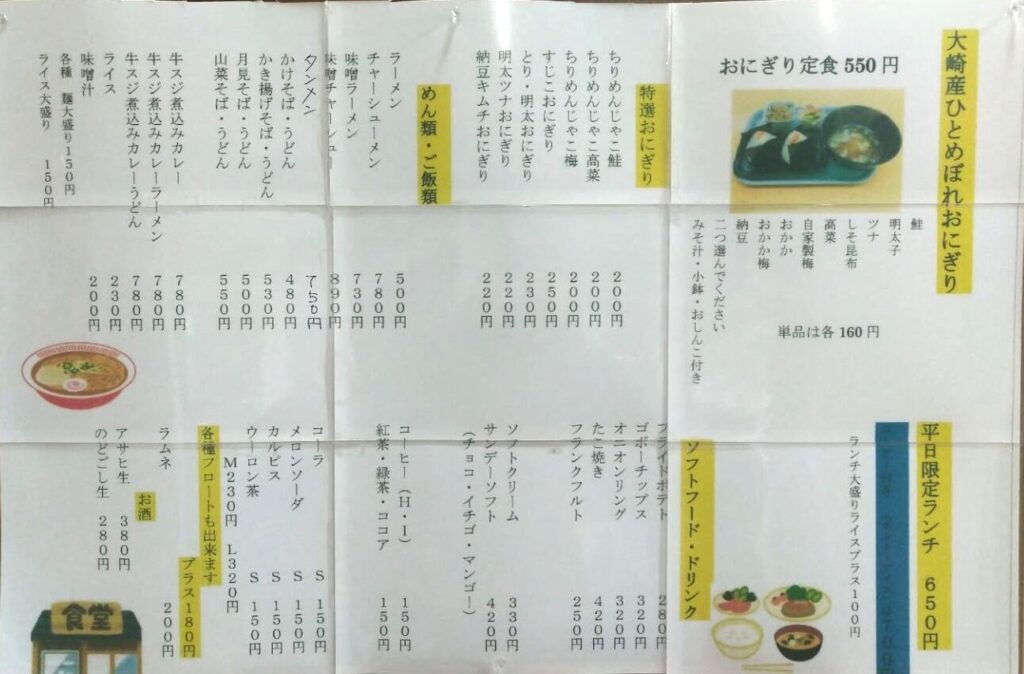 大崎産ひとめぼれおにぎり
おにぎり定食 550 円
鮭
明太子
ツナ
しそ昆布
高菜
自家製梅
おかか
おかか梅
納豆
二つ選んでください
みそ汁・小鉢・おしんこ付き
単品は各 160 円
特選おにぎり
ちりめんじゃこ鮭 200円
ちりめんじゃこ高菜 200円
ちりめんじゃこ梅 200円
すじこおにぎり 250円
とり・明太おにぎり 230円
明太ツナおにぎり 220円
納豆キムチおにぎり 220円
めん類・ご飯類
ラーメン 500円
チャーシューメン 780円
味噌ラーメン 730円
味噌チャーシュー 890円
タンメン 750円
かけそば・うどん 480円
かき揚げそば・うどん 530円
月見そば・うどん 500円
山菜そば・うどん 550円
牛スジ煮込みカレー 780円
牛スジ煮込みカレーラーメン 780円
牛スジ煮込みカレーうどん 780円
ライス 230円
味噌汁 200円
各種 麺大盛り150円
ライス大盛り 150円
平日限定ランチ 650円
ランチ大盛りライスプラス100円
ソフトフード・ドリンク
フライドポテト 280円
ゴボーチップス 320円
オニオンリング 320円
たこ焼き 420円
フランクフルト 250円
ソフトクリーム 330円
サンデーソフト 420円
(チョコ・イチゴ・マンゴー)
コーヒー(H・I) 150円
紅茶・緑茶・ココア 150円
コーラ S 150円
メロンソーダ S 150円
カルピス S 150円
ウーロン茶 S 150円
M230円 L320円
各種フロートも出来ます
プラス180円
ラムネ 200円
お酒
アサヒ生 380円
のどごし生 280円
食堂